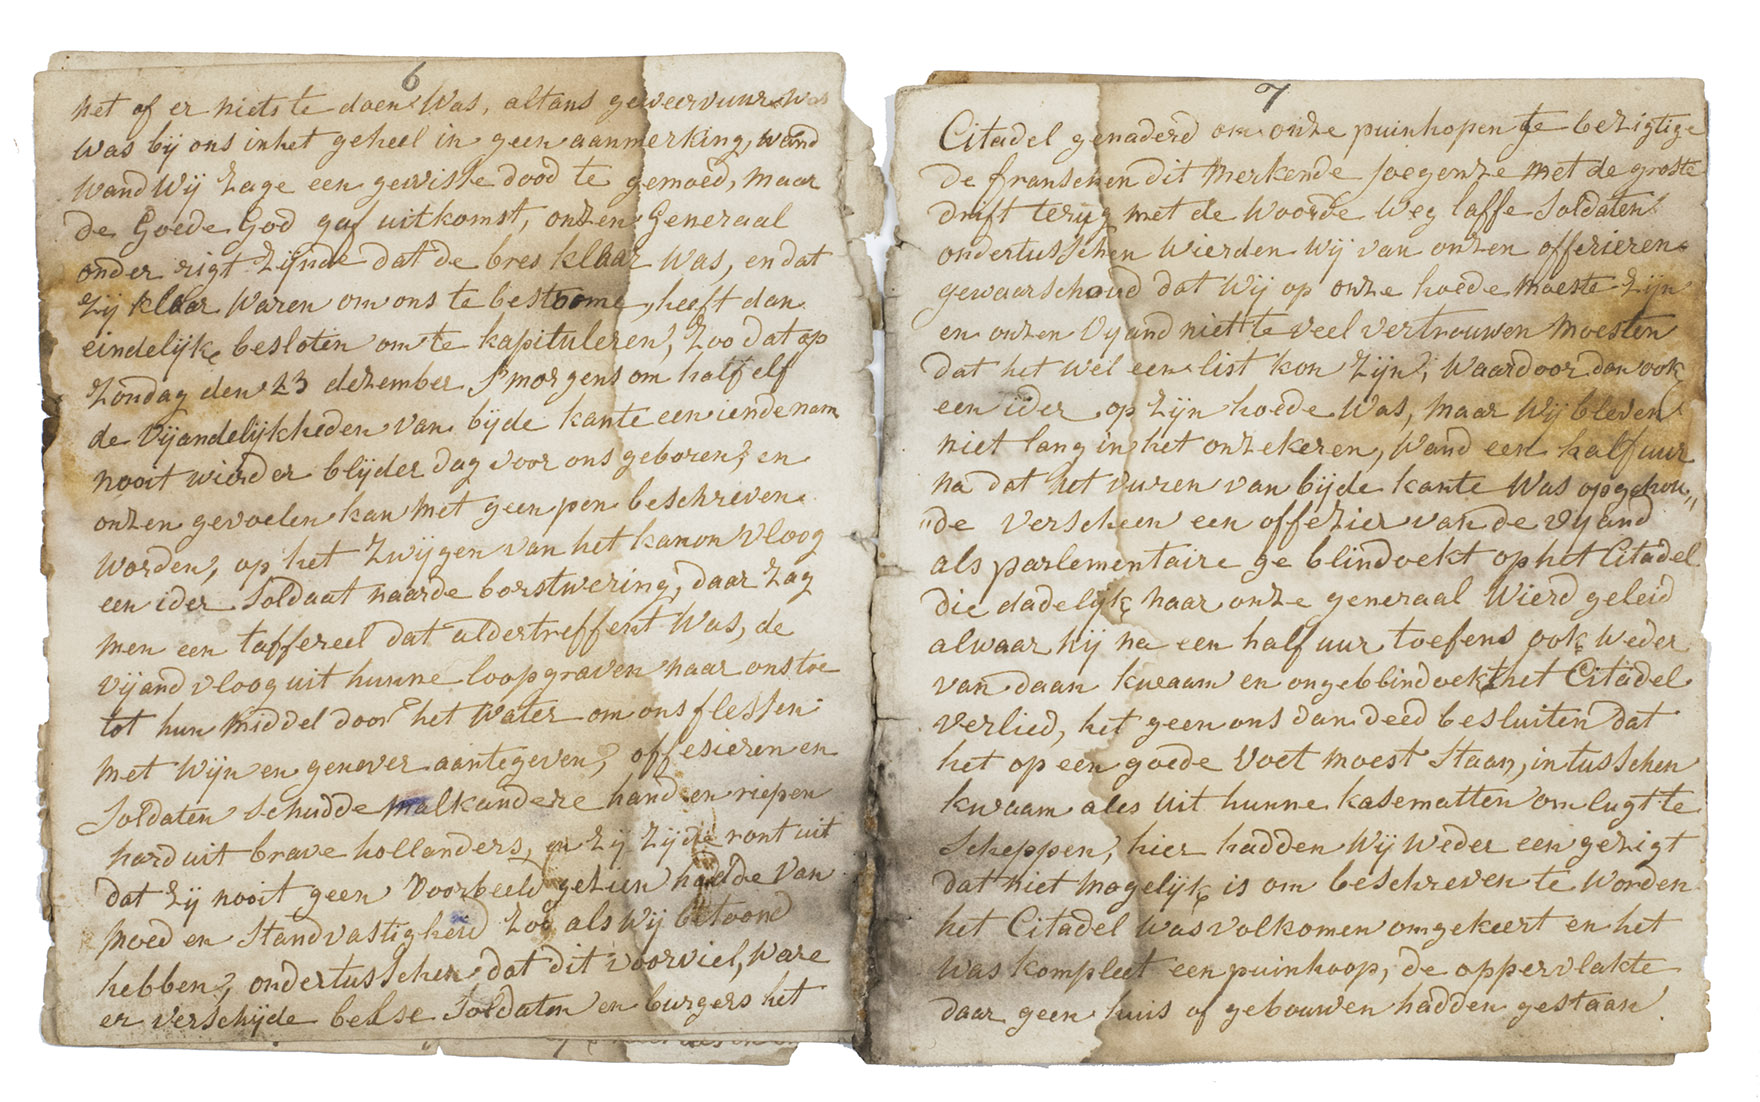 6
net of er niets te doen Was, altans geweervuur was
Was bij ons in het geheel in geen aanmerking, wand
Wand Wij zage een gewisse dood te gemoed, maar
de Goede God gaf uitkomst, onzen Generaal
onder rigt zijnde dat de bres klaar Was, en dat
zij klaar Waren om ons te bestoome, heeft dan
eindelijk besloten om te kapituleren, zoo dat op
Zondag den 23 dezember S'morgens om half elf
de Vijandelijkheden van bijde kante een iende nam
nooit wierd er blijder dag voor ons geboren, en
onzen gevoelen kan met geen pen beschreven
Worden, op het zwijgen van het kanon vloog
een ider Soldaat naar de borstwering, daar zag
men een taffereel dat aldertreffent Was, de
vijand vloog uit hunne loopgraven naar ons toe
tot hun middel door het Water om ons flessen
met Wijn en genever aantegeven, offesieren en
Soldaten schudde malkandere hand en riepen
hard uit brave hollanders, en zij zijde ront uit
dat zij nooit geen Voorbeeld gezien hadde van
moed en Standvastigheid zoo als Wij betoond
hebben, ondertusschen dat dit voorviel, Ware
er verschijde belse Soldaten en burgers het
7
Citadel genaderd om onze puinhopen te bezigtige
de franschen dit merkende joegen ze met de groste
drift terug met de Woorde Weg laffe Soldaten
ondertusschen Wierden Wij van onzen offerieren
gewaarschoud dat Wij op onze hoede moeste zijn
en onzen Vyand niet te veel vertrouwen moesten
dat het wel een list kon zijn, Waardoor dan ook
een ider op zijn hoede Was, maar Wij bleven
niet lang in het onzekeren, Wand een half uur
na dat het vuren van bijde kante Was opgehou„
„de verscheen een offezier van de vyand
als parlementaire ge blindoekt op het Citadel
die dadelijk naar onze generaal Wierd geleid
alwaar hij na een half uur toefens ook Weder
van daan kwaam en ongeblindoekt het Citadel
verlied, het geen ons dan deed besluiten dat
het op een goede Voet moest Staan, intusschen
kwaam ales uit hunne kasematten om lugt te
scheppen, hier hadden Wij Weder een gezigt
dat niet mogelijk is om beschreven te Worden
het Citadel Was volkomen omgekeert en het
Was kompleet een puinhoop, de oppervlakte
daar geen huis of gebouwen hadden gestaan